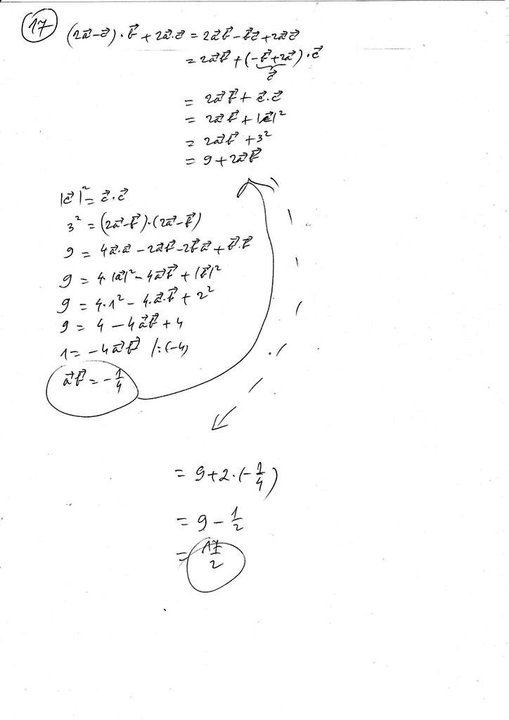 17
(2a⃗-c⃗)·b⃗+2a⃗·c⃗ = 2a⃗b⃗-b⃗c⃗+2a⃗c⃗
= 2a⃗b⃗+(-b⃗+2a⃗)·c⃗
c⃗
= 2a⃗b⃗+c⃗·c⃗
= 2a⃗b⃗+|c⃗|²
= 2a⃗b⃗+3²
= 9+2a⃗b⃗
|c⃗|²=c⃗·c⃗
3²=(2a⃗-b⃗)·(2a⃗-b⃗)
9=4a⃗·a⃗-2a⃗b⃗-2b⃗a⃗+b⃗·b⃗
9=4·|a⃗|²-4a⃗b⃗+|b⃗|²
9=4·1²-4·a⃗·b⃗+2²
9=4-4a⃗b⃗+4
1=-4a⃗b⃗ /:(-4)
a⃗b⃗=-1/4
=9+2·(-1/4)
=9-1/2
=17/2